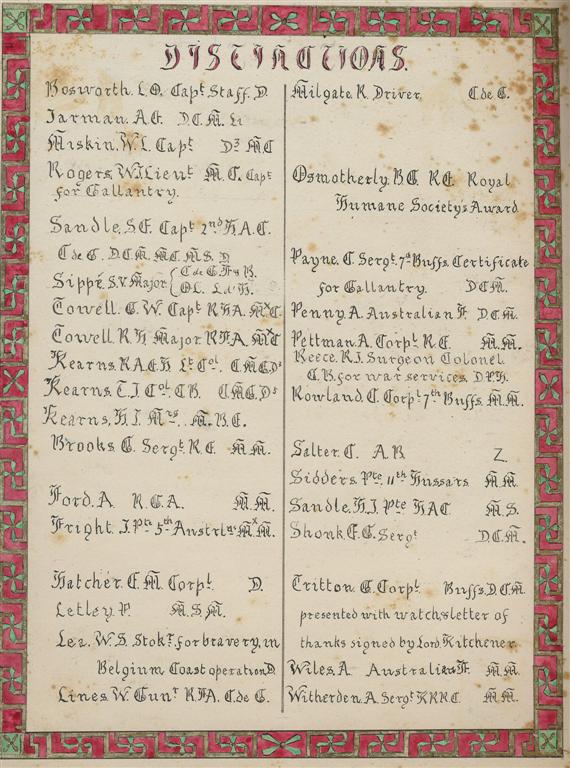 DISTINCTIONS.
Bosworth. L.O. Capt Staff. D.
Jarman. A.G. D.C.M. Li
Miskin. W.L. Capt D³ M.C
Rogers. W.J. Lieut M.C. Capt
for Gallantry.
Sandle. S.E. Capt 2nd H.A.C.
C de G. D.C.M. M.C. M.S. D
Sippé. S.V. Major { C de G. F & B.
O.L. L.d'H.
Towell. G.W. Capt R.H.A. MxC.
Towell. R.H Major R.F.A. MxC
Kearns. R.A.E.H Lt Col. C.M.G. Ds
Kearns. T.J. Col. C.B. C.M.G. Ds
Kearns. H.J. Mrs. M.B.E.
Brooks. G. Sergt R.E. M.M.
Ford. A. R.G.A. M.M.
Fright. J. Pte 5th Austrlns MxM.
Hatcher. E.M. Corpl. D.
Letley. P. M.S.M.
Lea. W.S. Stokr. for bravery, in
Belgium Coast operation D.
Lines. W. Gunr R.F.A. C. de G.
Milgate. R. Driver C de G.
Osmotherly. B.G. R.E. Royal
Humane Society's Award
Payne. C. Sergt. 7th Buffs. Certificate
for Gallantry. D.C.M.
Penny. A. Australian F. D.C.M.
Pettman. A. Corpl R.E. M.M.
Reece. R.J. Surgeon Colonel
C.B. for war services. D.P.H.
Rowland. C. Corpl 7th Buffs. M.M.
Salter. C. A.B Z.
Sidders. Pte 11th Hussars M.M.
Sandle. H.J. Pte HAC M.S.
Shonk. F.G. Sergt D.C.M.
Tritton. G. Corpl. Buffs. D.C.M.
presented with watch & letter of
thanks signed by Lord Kitchener
Wiles. A. Australian F. M.M.
Witherden. A. Sergt K.R.R.C. M.M.